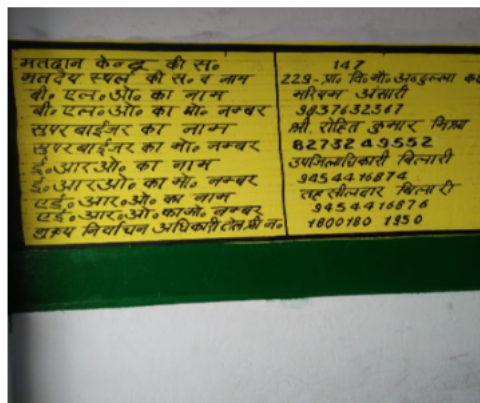 मतदान केन्द्र की स॰ 147
मतदेय स्थल की स॰ व नाम 229-प्रा॰ वि॰ मौ॰ अब्दुल्ला
बी॰ एल॰ ओ॰ का नाम मरियम अंसारी
बी॰ एल॰ ओ॰ का मो॰ नम्बर 9837632567
सुपरबाईजर का नाम श्री. रोहित कुमार मिश्रा
सुपरबाईजर का मो॰ नम्बर 8273249552
ई॰आरओ॰ का नाम उपजिलाधिकारी बिलारी
ई॰आरओ॰ का मो॰ नम्बर 9454416874
एई॰आर॰ओ॰ का नाम तहसीलदार बिलारी
एई॰आर॰ओ॰ का मो॰ नम्बर 9454416876
मुख्य निर्वाचन अधिकारी टोल फ्री न॰ 1800180 1950